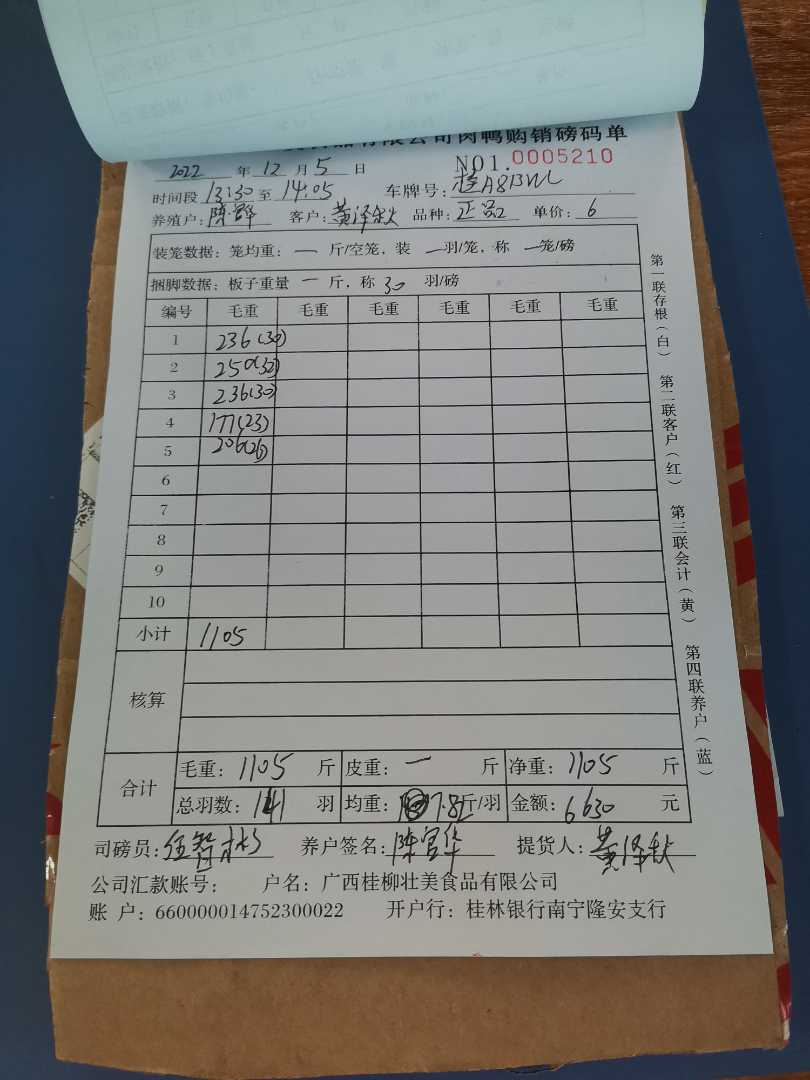 品有限公司肉鸭购销磅码单
2022 年 12 月 5 日 NO1.0005210
时间段 13:30 至 14:05 车牌号:桂A813VL
养殖户:陈 客户:黄泽秋 品种:正品 单价:6
装笼数据:笼均重:一 斤/空笼,装 一羽/笼,称 一笼/磅
捆脚数据:板子重量 一 斤,称 30 羽/磅
编号 毛重 毛重 毛重 毛重 毛重 毛重
1 236(30)
2 250(32)
3 236(30)
4 177(23)
5 206(26)
6
7
8
9
10
小计 1105
核算
合计 毛重:1105 斤 皮重:一 斤 净重:1105 斤
总羽数:141 羽 均重:7.82斤/羽 金额:6630 元
司磅员: 养户签名:陈官华 提货人:黄泽秋
公司汇款账号: 户名:广西桂柳壮美食品有限公司
账 户:660000014752300022 开户行:桂林银行南宁隆安支行
第一联存根(白) 第二联客户(红) 第三联会计(黄) 第四联养户(蓝)